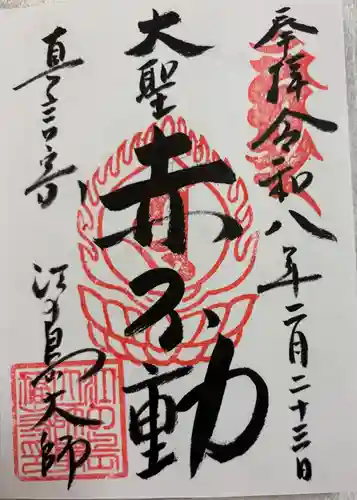 奉拝 令和八年二月二十三日
大聖
赤不動
真言宗
江ノ島大師